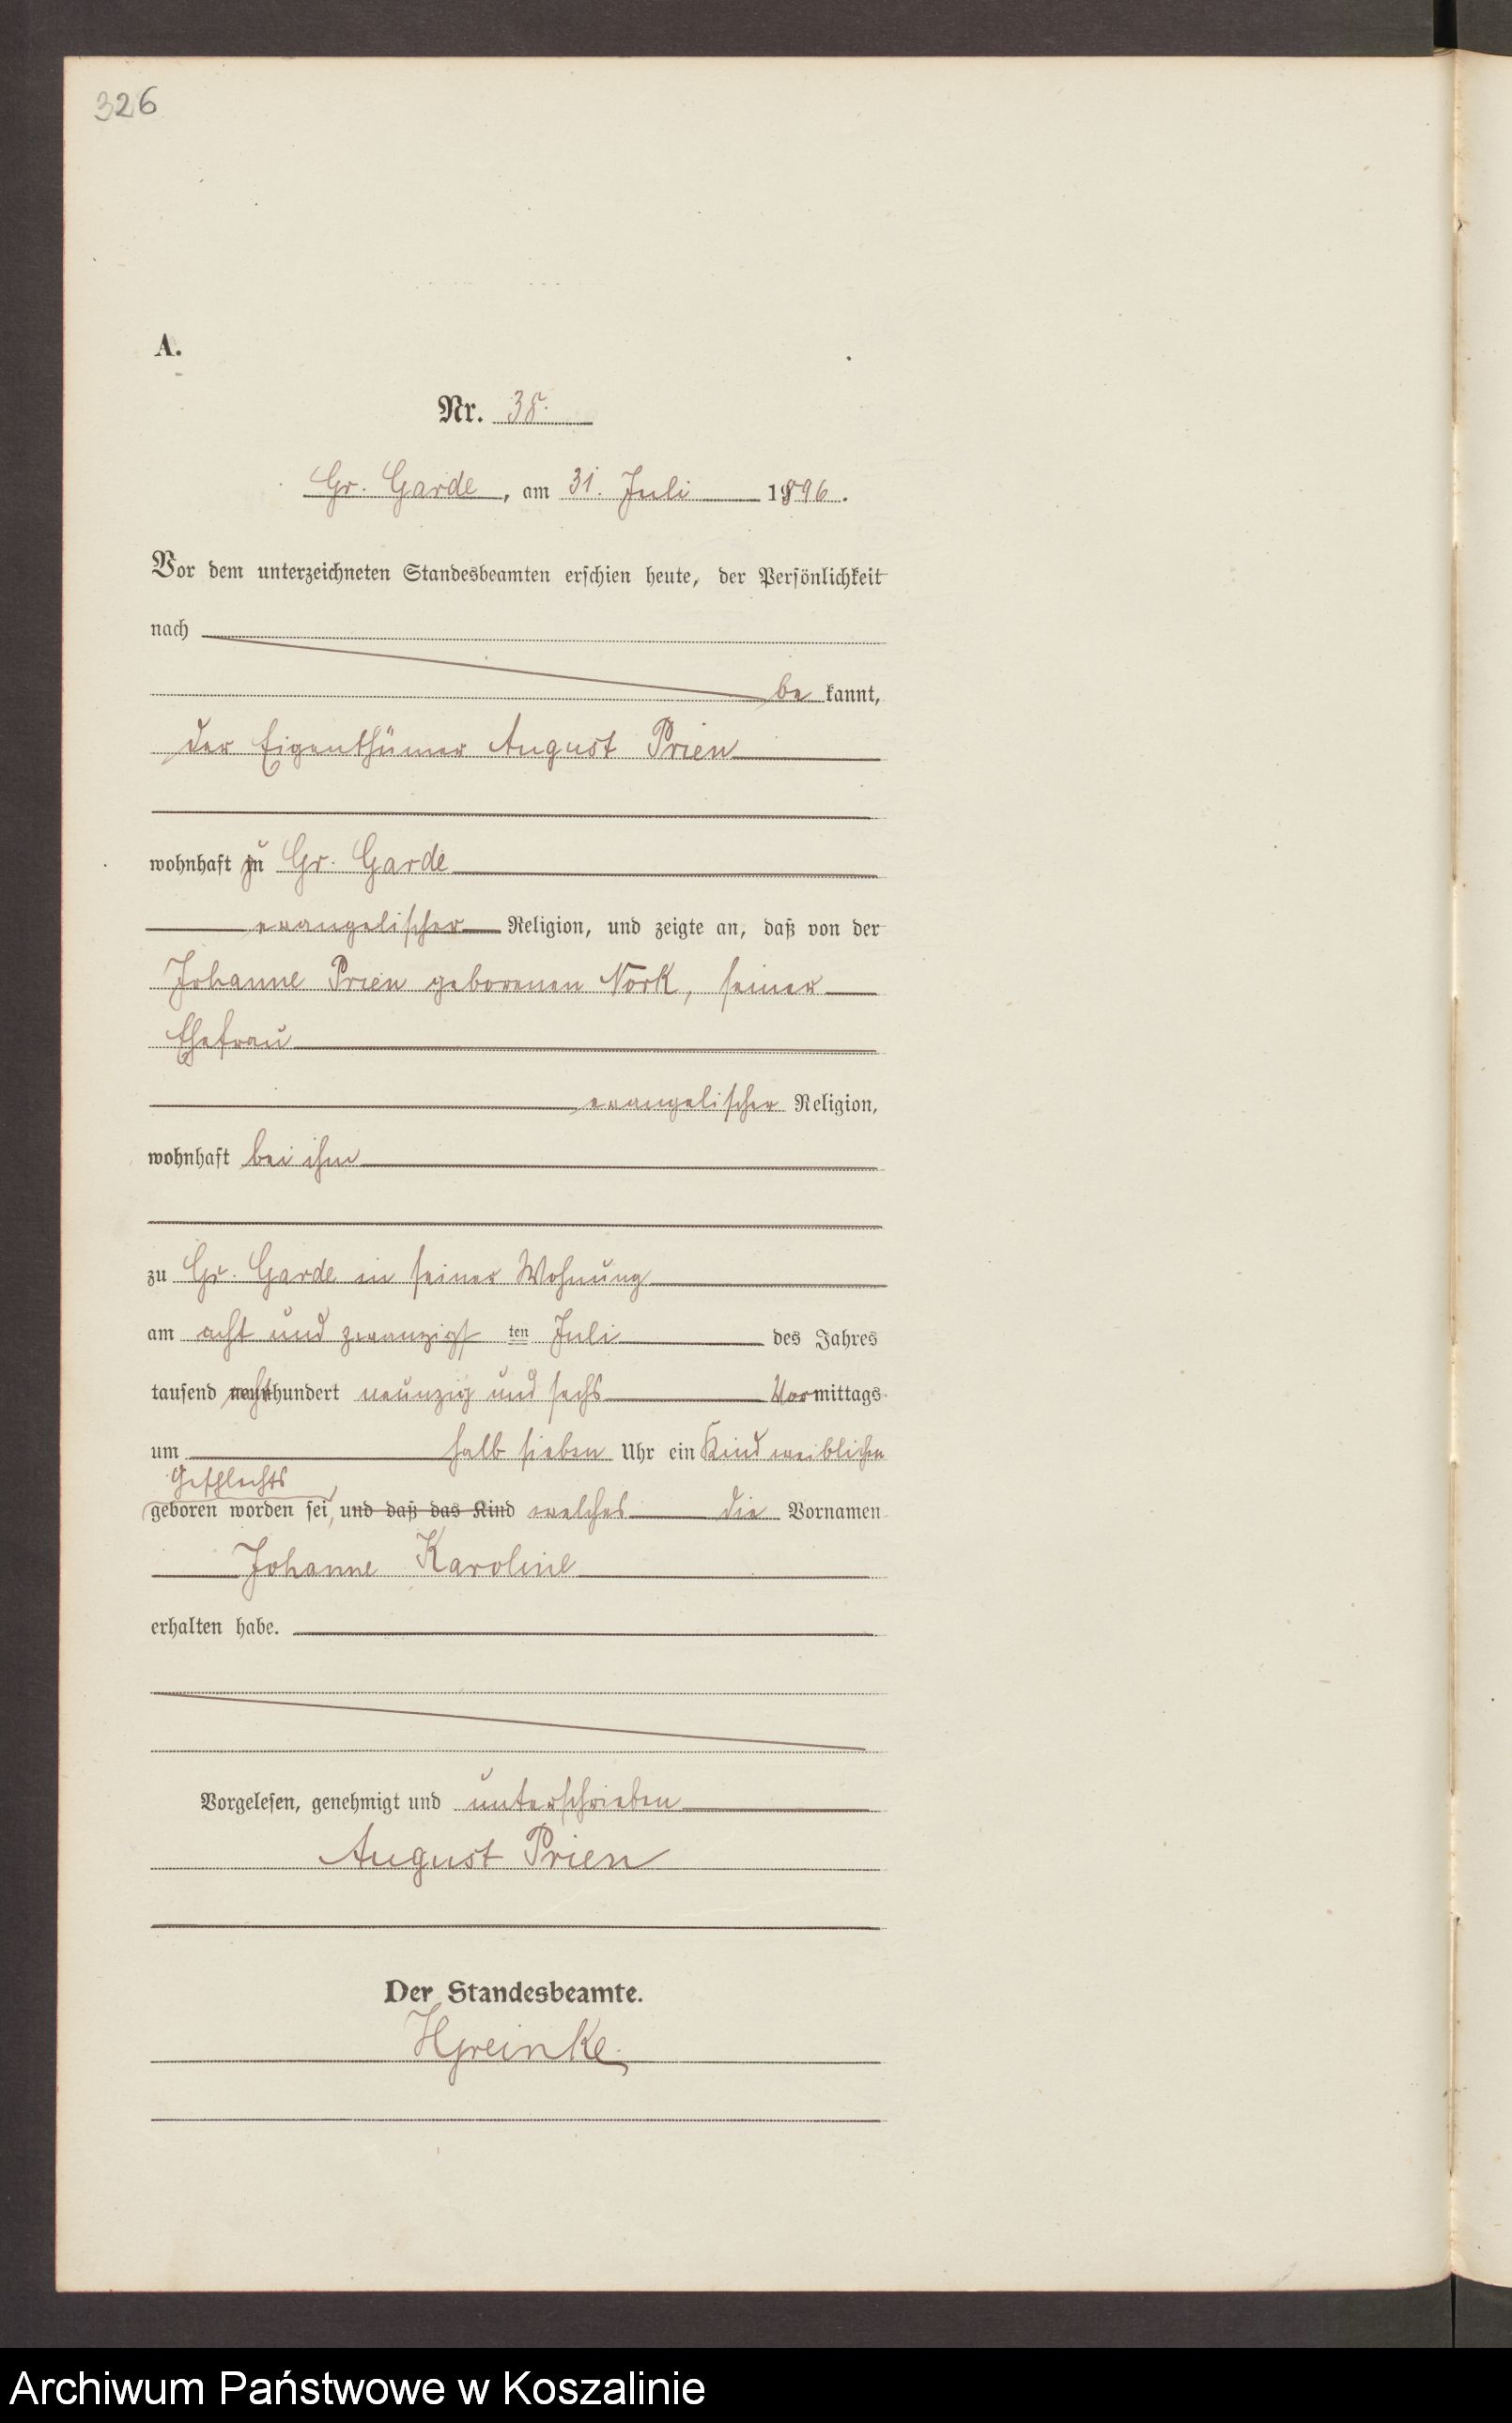 326
A.
Nr. 38.
Gr. Garde, am 31. Juli 1896.
Vor dem unterzeichneten Standesbeamten erschien heute, der Persönlichkeit
nach
be kannt,
der Eigenthümer August Prien
wohnhaft zu Gr. Garde
evangelischer Religion, und zeigte an, daß von der
Johanne Prien geborenen Nork, seiner
Ehefrau
evangelischer Religion,
wohnhaft bei ihm
zu Gr. Garde in seiner Wohnung
am acht und zwanzigsten Juli des Jahres
tausend achthundert neunzig und sechs Vormittags
um halb sieben Uhr ein Kind weiblichen
Geschlechts
geboren worden sei, und daß das Kind welches die Vornamen
Johanne Karoline
erhalten habe.
Vorgelesen, genehmigt und unterschrieben
August Prien
Der Standesbeamte.
Archiwum Państwowe w Koszalinie